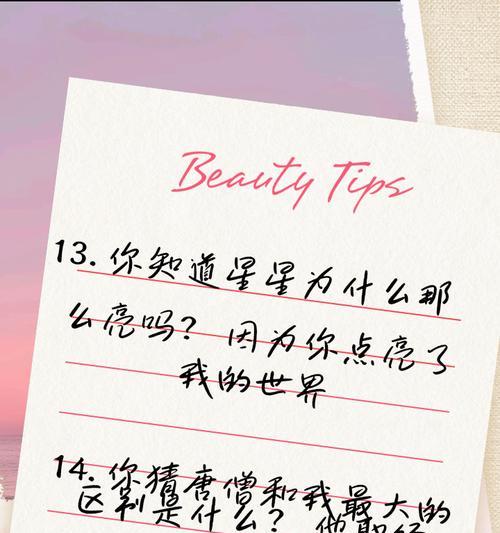 Beauty Tips
13. 你知道星星为什么那
么亮吗？ 因为你点亮了
我的世界
14. 你猜唐僧和我最大的
区别是什么？ 他取经